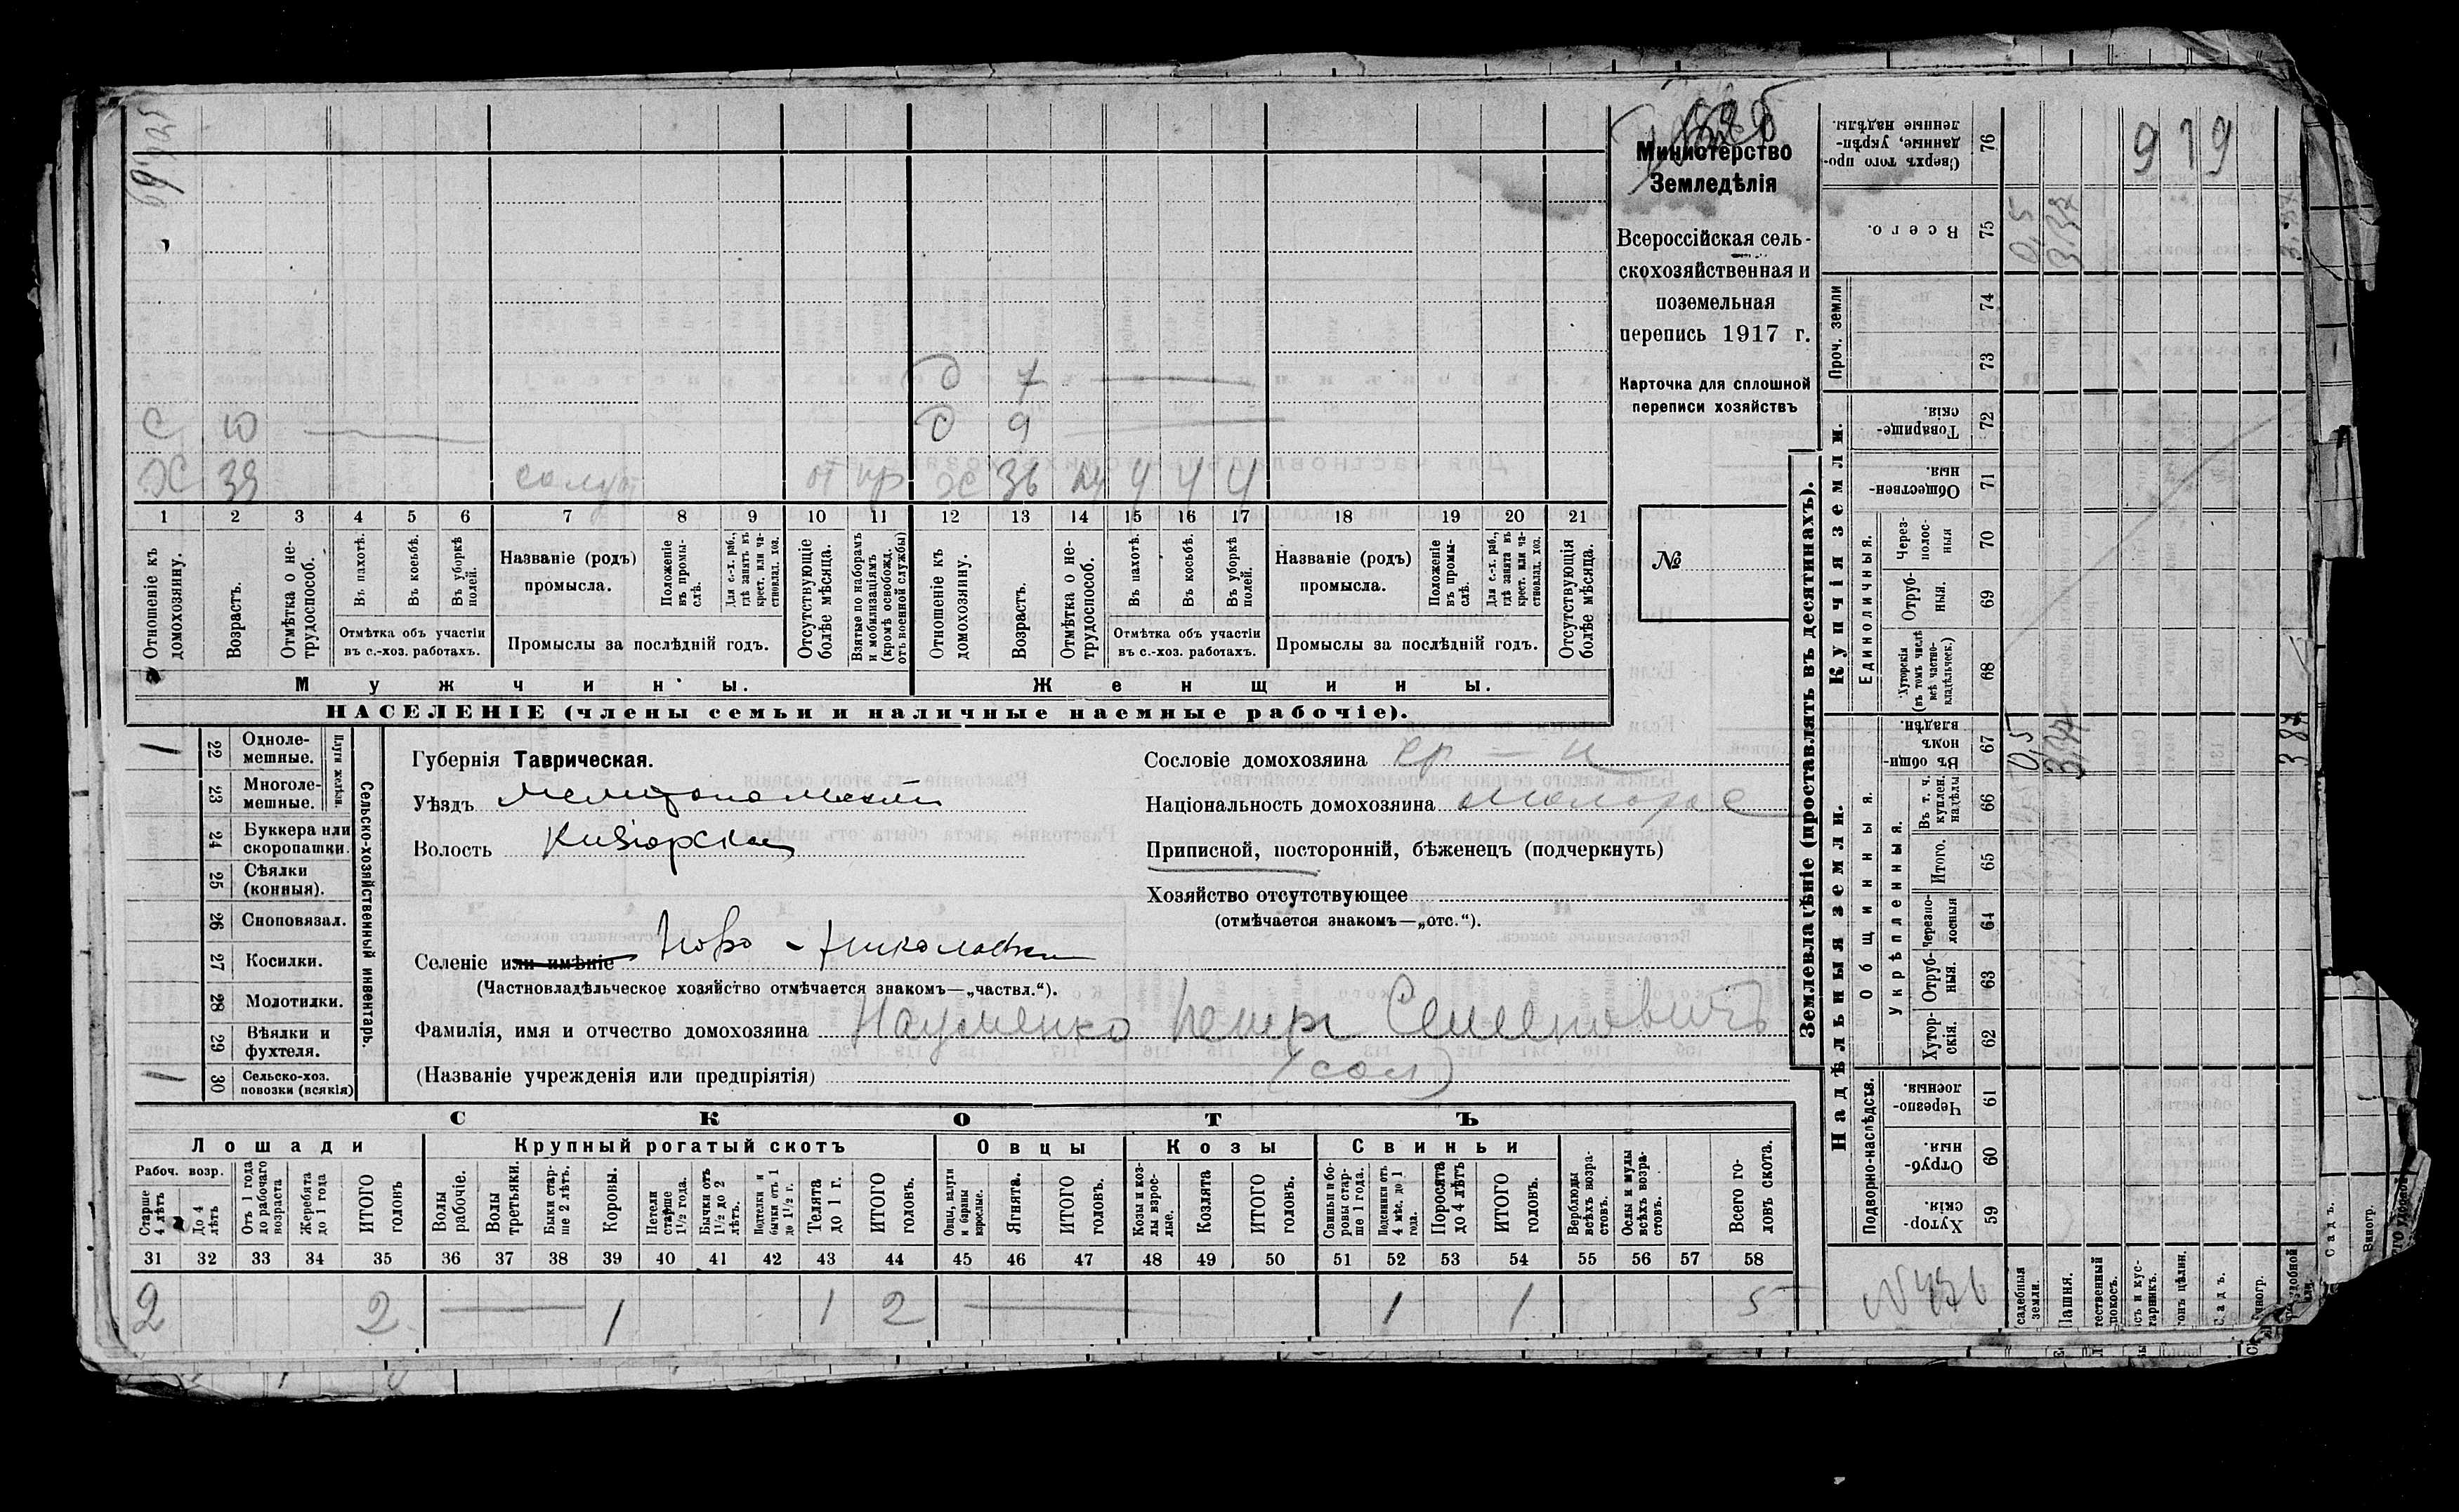 Министерство
Земледѣлія
Всероссійская сель-
скохозяйственная и
поземельная
перепись 1917 г.
Карточка для сплошной
переписи хозяйствъ
№
Д 7
С 10 Д 9
Х 39 солдат от пр Х 36 4 4 4
1 2 3 4 5 6 7 8 9 10 11 12 13 14 15 16 17 18 19 20 21
Отношеніе къ домохозяину.
Возрастъ.
Отмѣтка о не-трудоспособ.
Въ пахотѣ.
Въ косьбѣ.
Въ уборкѣ полей.
Отмѣтка объ участіи
въ с.-хоз. работахъ.
Названіе (родъ)
промысла.
Положеніе въ промы-слѣ.
Для с.-х. раб., гдѣ занятъ въ крест. или ча-стновлад. хоз.
Промыслы за послѣдній годъ.
Отсутствующіе болѣе мѣсяца.
Взятые по наборамъ и мобилизаціямъ (кромѣ освобожд. отъ военной службы)
Отношеніе къ домохозяину.
Возрастъ.
Отмѣтка о не-трудоспособ.
Въ пахотѣ.
Въ косьбѣ.
Въ уборкѣ полей.
Отмѣтка объ участіи
въ с.-хоз. работахъ.
Названіе (родъ)
промысла.
Положеніе въ промы-слѣ.
Для с.-х. раб., гдѣ занятъ въ крест. или ча-стновлад. хоз.
Промыслы за послѣдній годъ.
Отсутствующія болѣе мѣсяца.
Мужчины.
Женщины.
НАСЕЛЕНІЕ (члены семьи и наличные наемные рабочіе).
1 22 Одноле-мешные.
23 Многоле-мешные.
Плуги желѣзн.
24 Буккера или скоропашки.
25 Сѣялки (конныя).
26 Сноповязал.
27 Косилки.
28 Молотилки.
29 Вѣялки и фухтеля.
1 30 Сельско-хоз. повозки (всякія)
Сельско-хозяйственный инвентарь.
Губернія Таврическая.
Уѣздъ Мелитопольскій
Волость Кизіярская
Селеніе или имѣніе Ново-Николаевка
(Частновладѣльческое хозяйство отмѣчается знакомъ—„частвл.“).
Фамилія, имя и отчество домохозяина Науменко Петръ Семеновичъ
(Названіе учрежденія или предпріятія) (сол)
Сословіе домохозяина кр-н
Національность домохозяина малорос
Приписной, посторонній, бѣженецъ (подчеркнуть)
Хозяйство отсутствующее
(отмѣчается знакомъ—„отс.“).
СКОТЪ
Лошади
Крупный рогатый скотъ
Овцы
Козы
Свиньи
Рабоч. возр.
Старше 4 лѣтъ
До 4 лѣтъ
Отъ 1 года до рабочаго возраста
Жеребята до 1 года
ИТОГО головъ
Волы рабочіе.
Волы третьяки.
Быки стар-ше 2 лѣтъ.
Коровы.
Нетели старше 1½ года.
Бычки отъ 1½ до 2 лѣтъ.
Подтелки и бычки отъ 1 до 1½ г.
Телята до 1 г.
ИТОГО головъ.
Овцы, валухи и бараны взрослые.
Ягнята.
ИТОГО головъ.
Козы и коз-лы взрос-лые.
Козлята
ИТОГО головъ.
Свиньи и бо-ровы стар-ше 1 года.
Подсвинки отъ 4 мѣс. до 1 года.
Поросята до 4 лѣтъ
ИТОГО головъ.
Верблюды всѣхъ возра-стовъ.
Ослы и мулы всѣхъ возра-стовъ.
Всего го-ловъ скота.
31 32 33 34 35 36 37 38 39 40 41 42 43 44 45 46 47 48 49 50 51 52 53 54 55 56 57 58
2 2 1 1 2 1 1 5
Землевладѣніе (проставлять въ десятинахъ).
Надѣльныя земли.
Купчія земли.
Проч. земли
Сверхъ того про-данные, укрѣп-ленные надѣлы. 76
919
Всего. 75
0,5
74
73
Товарище-скія. 72
Обществен-ныя. 71
Единоличныя.
Через-полос-ныя 70
Отруб-ныя. 69
Хуторскія (въ томъ числѣ всѣ частно-владѣльческ.) 68
Въ общи-номъ владѣн. 67
0,5
Общинныя.
Укрѣпленныя.
Въ т. ч. куплен. надѣлы 66
Итого. 65
Черезпо-лосныя 64
Отруб-ныя. 63
Хутор-скія. 62
Подворно-наслѣдств.
Черезпо-лосныя. 61
Отруб-ныя. 60
Хутор-скія 59
садебныя земли.
Пашня.
Садъ.
Виногр.